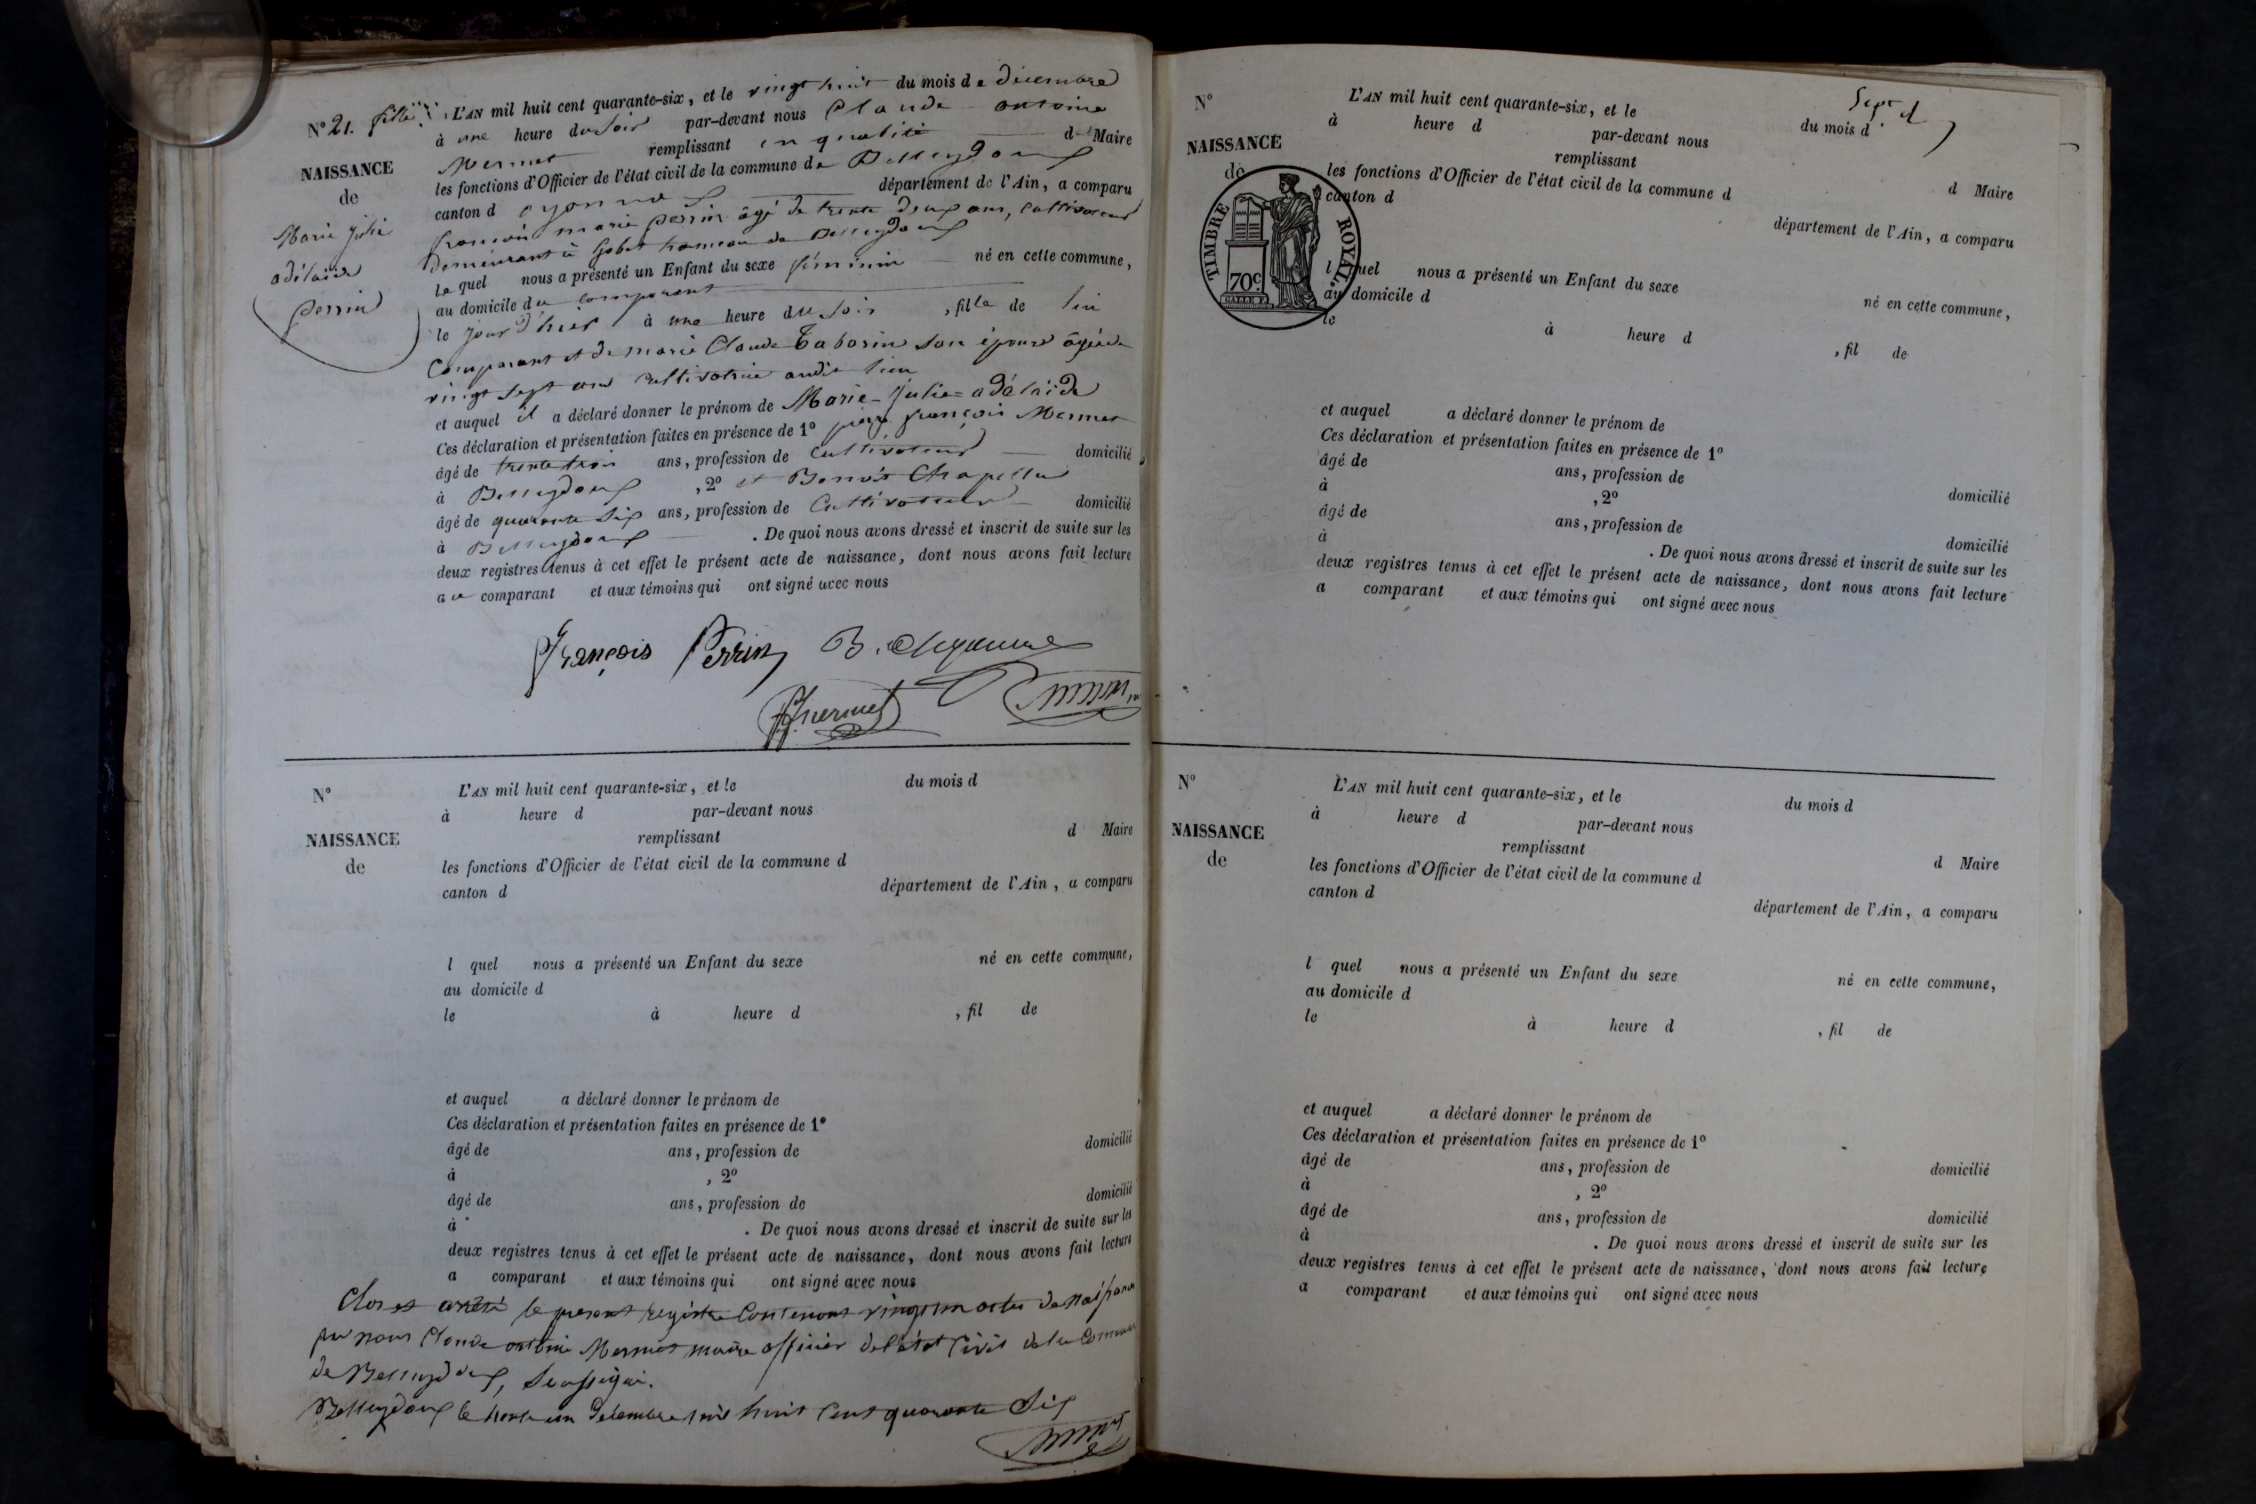 N° 21. fille
NAISSANCE
de
Marie julie
adélaïde
perrin
L'AN mil huit cent quarante-six, et le vingt huit du mois de décembre
à une heure du soir par-devant nous Claude antoine
Mermet remplissant en qualité d Maire
les fonctions d'Officier de l'état civil de la commune de Belleydoux
canton d oyonnax département de l'Ain, a comparu
francois marie perrin âgé de trente deux ans, cultivateur
demeurant à gobet hameau de Belleydoux
le quel nous a présenté un Enfant du sexe féminin né en cette commune,
au domicile du comparant
le jour d'hier à une heure du soir, fille de lui
Comparant et de marie Claude Taborin son épouse âgée de
vingt sept ans cultivatrice audit lieu
et auquel il a déclaré donner le prénom de Marie-Julie=adélaïde
Ces déclaration et présentation faites en présence de 1° pierre françois Mermet
âgé de trente trois ans, profession de Cultivateur domicilié
à Belleydoux, 2° et Benoit Chapellu
âgé de quarante six ans, profession de Cultivateur domicilié
à Belleydoux. De quoi nous avons dressé et inscrit de suite sur les
deux registres tenus à cet effet le présent acte de naissance, dont nous avons fait lecture
au comparant et aux témoins qui ont signé avec nous
François Perrin B.
mermet
N°
NAISSANCE
de
L'AN mil huit cent quarante-six, et le du mois d
à heure d par-devant nous
remplissant d Maire
les fonctions d'Officier de l'état civil de la commune d
canton d département de l'Ain, a comparu
l quel nous a présenté un Enfant du sexe né en cette commune,
au domicile d
le à heure d , fil de
et auquel a déclaré donner le prénom de
Ces déclaration et présentation faites en présence de 1°
âgé de ans, profession de domicilié
à , 2°
âgé de ans, profession de domicilié
à . De quoi nous avons dressé et inscrit de suite sur les
deux registres tenus à cet effet le présent acte de naissance, dont nous avons fait lecture
a comparant et aux témoins qui ont signé avec nous
Clos et arrêté le present registre Contenant vingt un actes de Naissance
par nous Claude antoine Mermet maire officier de l'état Civil de la Commune
de Belleydoux, Soussigné.
Belleydoux le trente un Décembre mil huit Cent quarante Six
N°
NAISSANCE
de
TIMBRE ROYAL.
70c.
Sept
L'AN mil huit cent quarante-six, et le du mois d
à heure d par-devant nous
remplissant d Maire
les fonctions d'Officier de l'état civil de la commune d
canton d département de l'Ain, a comparu
l quel nous a présenté un Enfant du sexe né en cette commune,
au domicile d
le à heure d , fil de
et auquel a déclaré donner le prénom de
Ces déclaration et présentation faites en présence de 1°
âgé de ans, profession de domicilié
à , 2°
âgé de ans, profession de domicilié
à . De quoi nous avons dressé et inscrit de suite sur les
deux registres tenus à cet effet le présent acte de naissance, dont nous avons fait lecture
a comparant et aux témoins qui ont signé avec nous
N°
NAISSANCE
de
L'AN mil huit cent quarante-six, et le du mois d
à heure d par-devant nous
remplissant d Maire
les fonctions d'Officier de l'état civil de la commune d
canton d département de l'Ain, a comparu
l quel nous a présenté un Enfant du sexe né en cette commune,
au domicile d
le à heure d , fil de
et auquel a déclaré donner le prénom de
Ces déclaration et présentation faites en présence de 1°
âgé de ans, profession de domicilié
à , 2°
âgé de ans, profession de domicilié
à . De quoi nous avons dressé et inscrit de suite sur les
deux registres tenus à cet effet le présent acte de naissance, dont nous avons fait lecture
a comparant et aux témoins qui ont signé avec nous